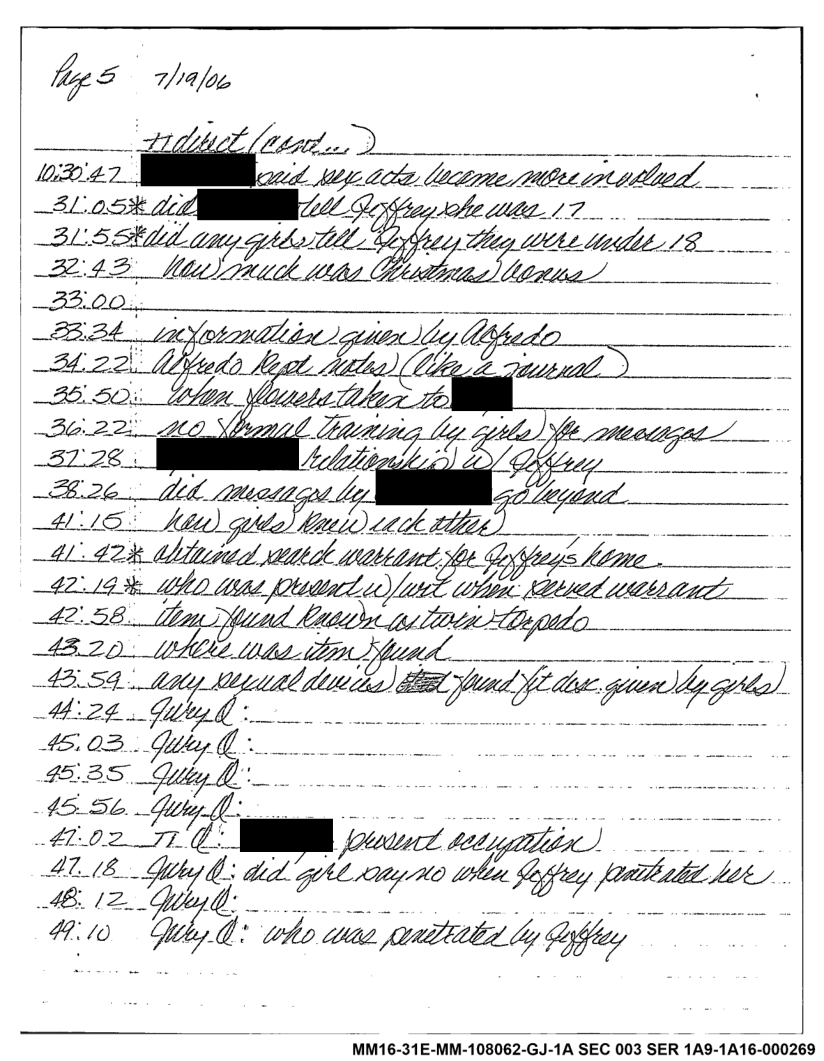 Page 5 7/19/06
π direct (cont...)
10:30:47 said sex acts became more involved
31:05* did tell Jeffrey she was 17
31:55* did any girls tell Jeffrey they were under 18
32:43 how much was Christmas bonus
33:00
33:34 information given by Alfredo
34:22 Alfredo kept notes (like a journal)
35:50 when flowers taken to
36:22 no formal training by girls for messages
37:28 relationship w/ Jeffrey
38:26 did messages by go beyond
41:15 how girls knew each other
41:42* obtained search warrant for Jeffrey's home.
42:19* who was present w/ wit when served warrant
42:58 item found known as twin torpedo
43:20 where was item found
43:59 any sexual devices found fit desc. given by girls
44:24 Jury Q:
45:03 Jury Q:
45:35 Jury Q:
45:56 Jury Q:
47:02 π Q: present occupation
47:18 Jury Q: did girl say no when Jeffrey penetrated her
48:12 Jury Q:
49:10 Jury Q: who was penetrated by Jeffrey
MM16-31E-MM-108062-GJ-1A SEC 003 SER 1A9-1A16-000269